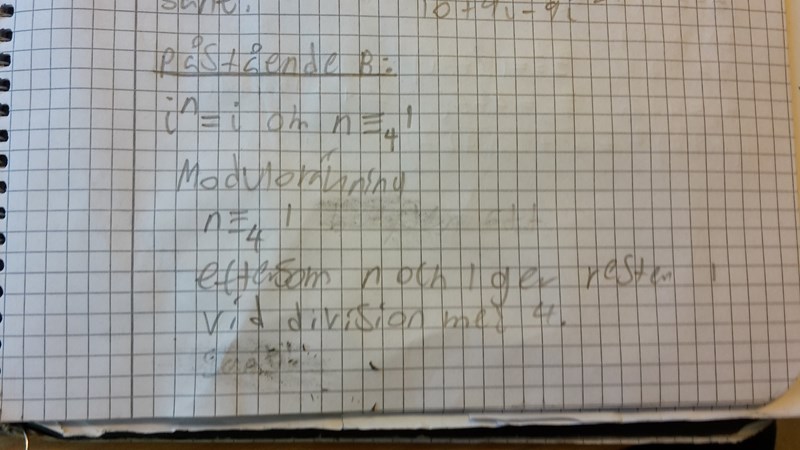 Påstående B:
iⁿ = i om n ≡₄ 1
Moduloräkning
n ≡₄ 1
eftersom n och 1 ger resten 1
vid division med 4.